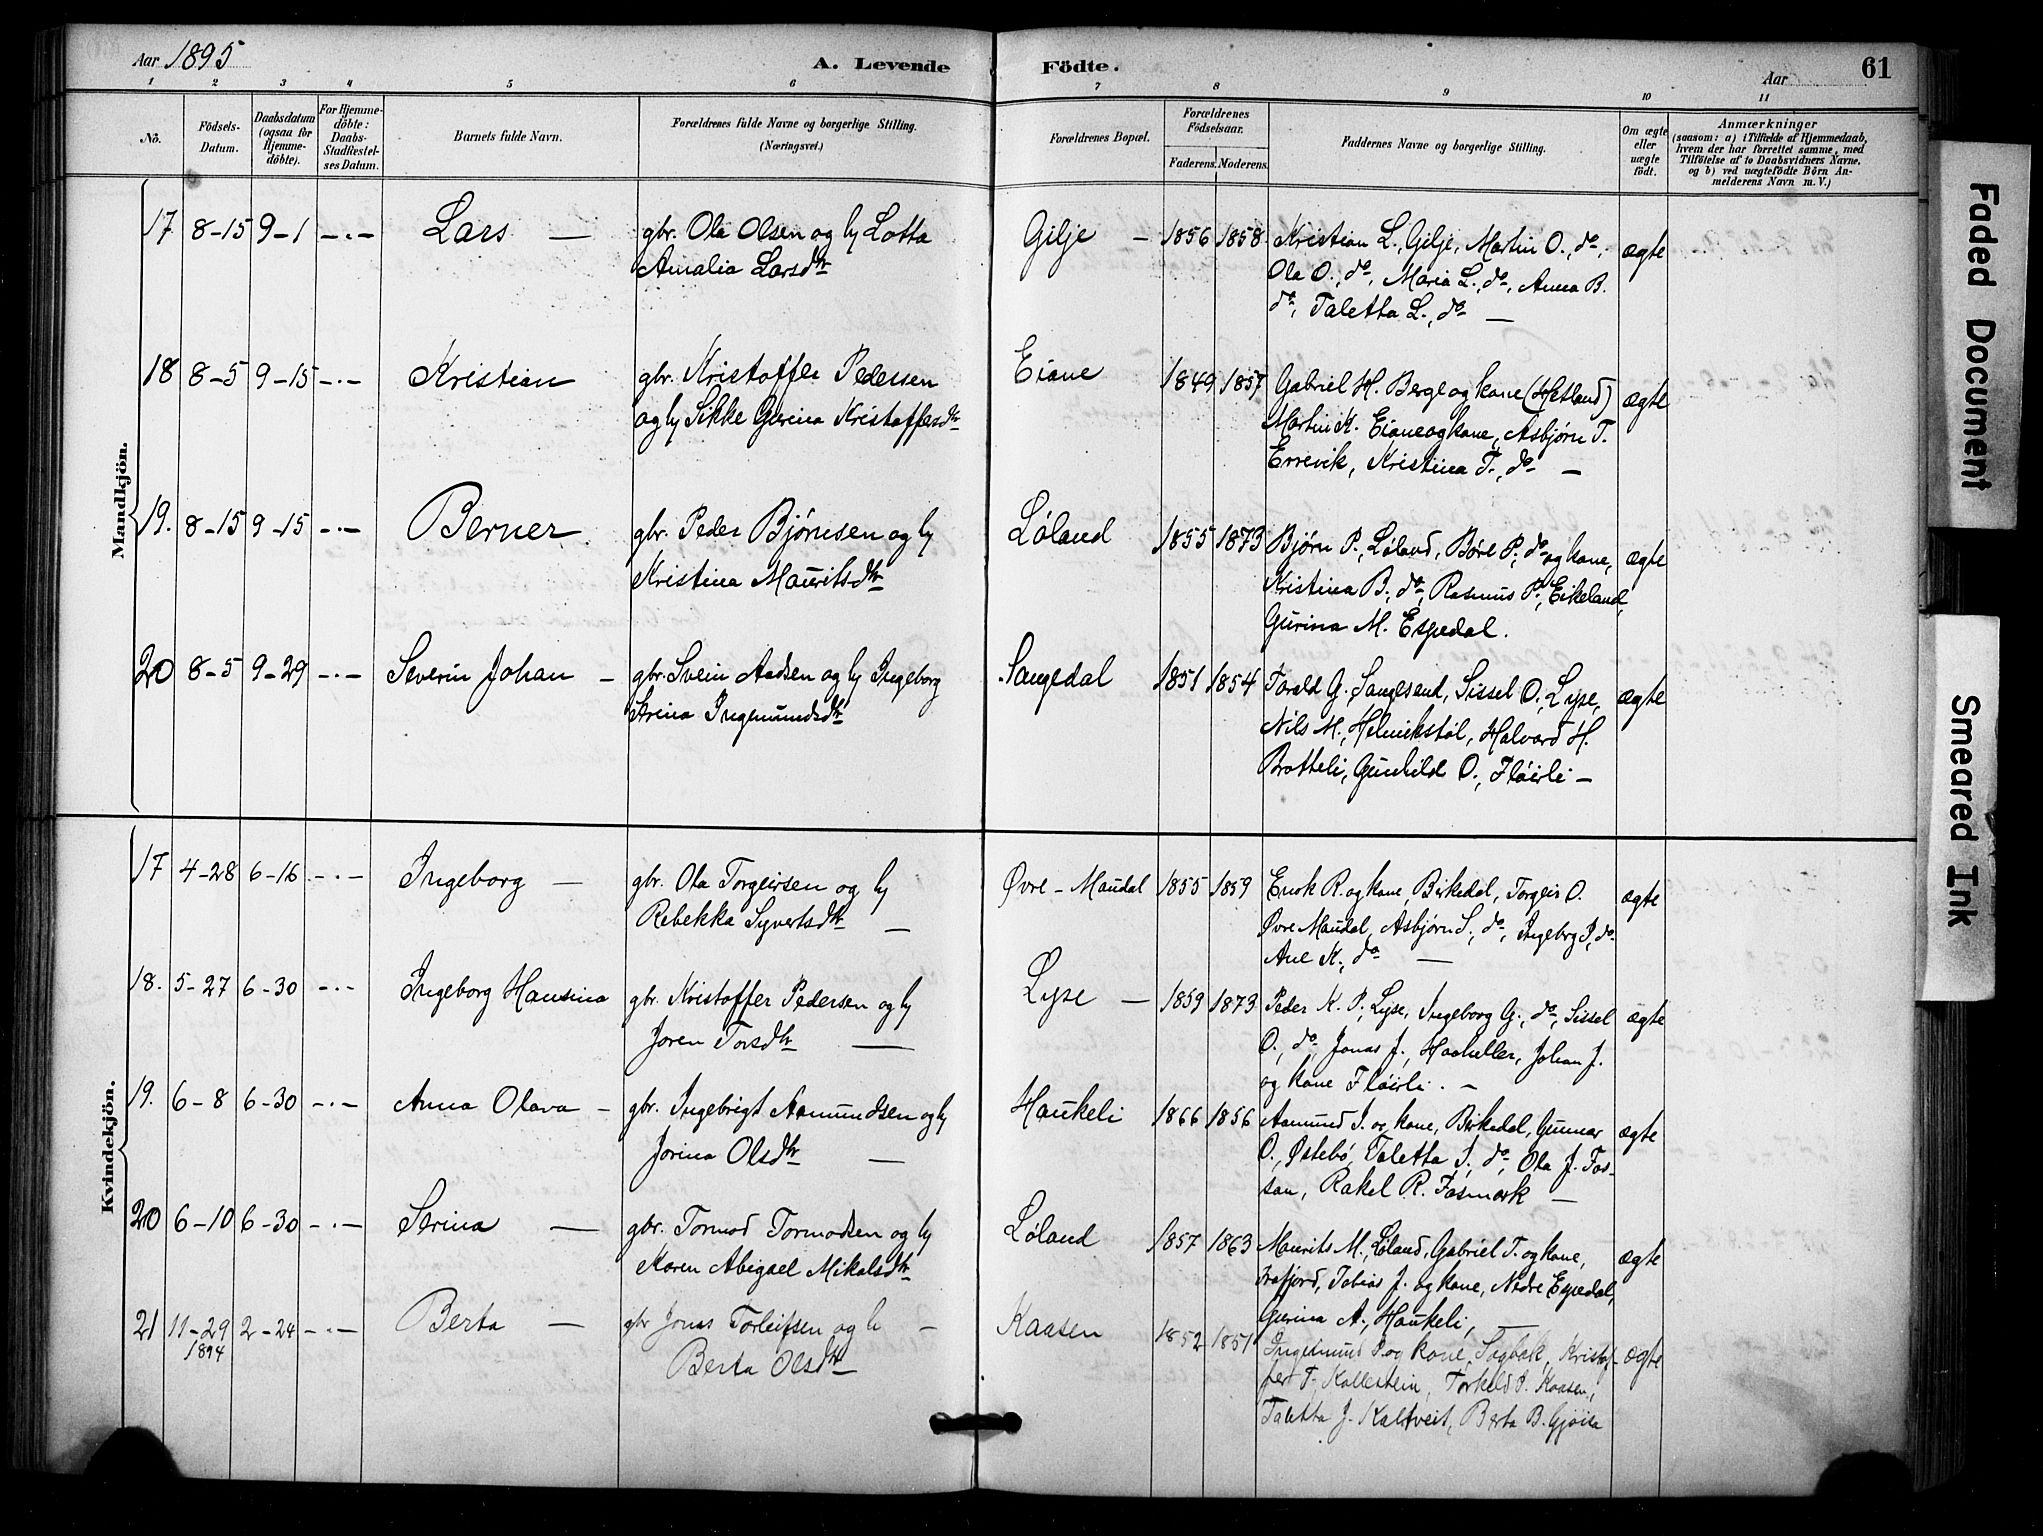 Aar 1895
A. Levende
Födte.
Aar
61
1 2 3 4 5 6 7 8 9 10 11
No.
Födsels-Datum.
Daabsdatum (ogsaa for Hjemme-döbte).
For Hjemme-döbte: Daabs-Stadfæstel-ses Datum.
Barnets fulde Navn.
Forældrenes fulde Navne og borgerlige Stilling.
(Næringsvei.)
Forældrenes Bopæl.
Forældrenes Födselsaar.
Faderens. Moderens.
Faddernes Navne og borgerlige Stilling.
Om ægte eller uægte födt.
Anmærkninger
(saasom: a) i Tilfælde af Hjemmedaab, hvem der har forrettet samme, med Tilföielse af to Daabsvidners Navne, og b) ved uægtefödte Börn Anmelderens Navn m. V.)
Mandkjön.
17 8-15 9-1 -.- Lars — gbr. Ola Olsen og h Lotta Gilje — 1856 1858 Kristian L., Gilje, Martin O., do, ægte
Amalia Larsdtr Ola O., do, Maria L., do, Anna B.
do, Taletta L., do —
18 8-5 9-15 -.- Kristian gbr. Kristoffer Pedersen Eiane 1849 1857 Gabriel H. Berge og kone (Hetland) ægte
og h Sikke Gurina Kristoffersdtr Martin K. Eiane og kone, Asbjørn T.
Errevik, Kristina T., do —
19. 8-15 9-15 -.- Berner gbr. Peder Bjørnsen og h Løland 1855 1873 Bjørn P., Løland, Børe P., do og kone, ægte
Kristina Mauritsdtr Kristina B., do, Rasmus P., Eikeland,
Gurina M. Espedal.
20 8-5 9-29 -.- Severin Johan — gbr. Svein Aadsen og h Ingeborg Sangedal 1851 1854 Torald G., Sangesand, Sissel O., Lyse, ægte
Serina Ingemundsdtr Nils M., Helmikstøl, Halvard H.
Bratteli, Gunhild O., Fløirli —
Kvindekjön.
17 4-28 6-16 -.- Ingeborg — gbr. Ola Torgeirsen og h Øvre-Maudal 1855 1859 Enok R. og kone, Birkedal, Torgeir O. ægte
Rebekka Syvertsdtr — Øvre Maudal, Asbjørn S., do, Ingebrg S., do.
Ane K., do —
18. 5-27 6-30 -.- Ingeborg Hansina gbr. Kristoffer Pedersen og h Lyse — 1859 1873 Peder K. P., Lyse, Ingeborg G., do, Sissel ægte
Joren Torsdtr — O., do, Jonas J., Haaheller, Johan J.
og kone Fløirli. —
19. 6-8 6-30 -.- Anna Olava — gbr. Ingebrigt Aamundsen og h Haukeli 1866 1856 Aamund I. og kone, Birkedal, Gunnar ægte
Jorina Olsdtr — O., Østebø, Taletta S., do, Ola J. Fos-
san, Rakel R. Fosmark —
20 6-10 6-30 -.- Serina — gbr. Tormod Tormodsen og h Løland 1857 1863 Maurits M., Løland, Gabriel T. og kone, ægte
Karen Abigael Mikalsdtr Frafjord, Tobias J. og kone, Nedre Espedal,
Gurina A., Haukeli, —
21 11-29 2-24 -.- Berta — gbr Jonas Torleifsen og h — Kaasen 1852 1851 Ingemund P. og kone, Sagbak, Kristof- ægte
1894 Berta Olsdtr fer T. Kallestein, Torkild P. Kaasen,
Taletta J. Kaltveit, Berta B. Gjøisa
Faded Document
Smeared Ink